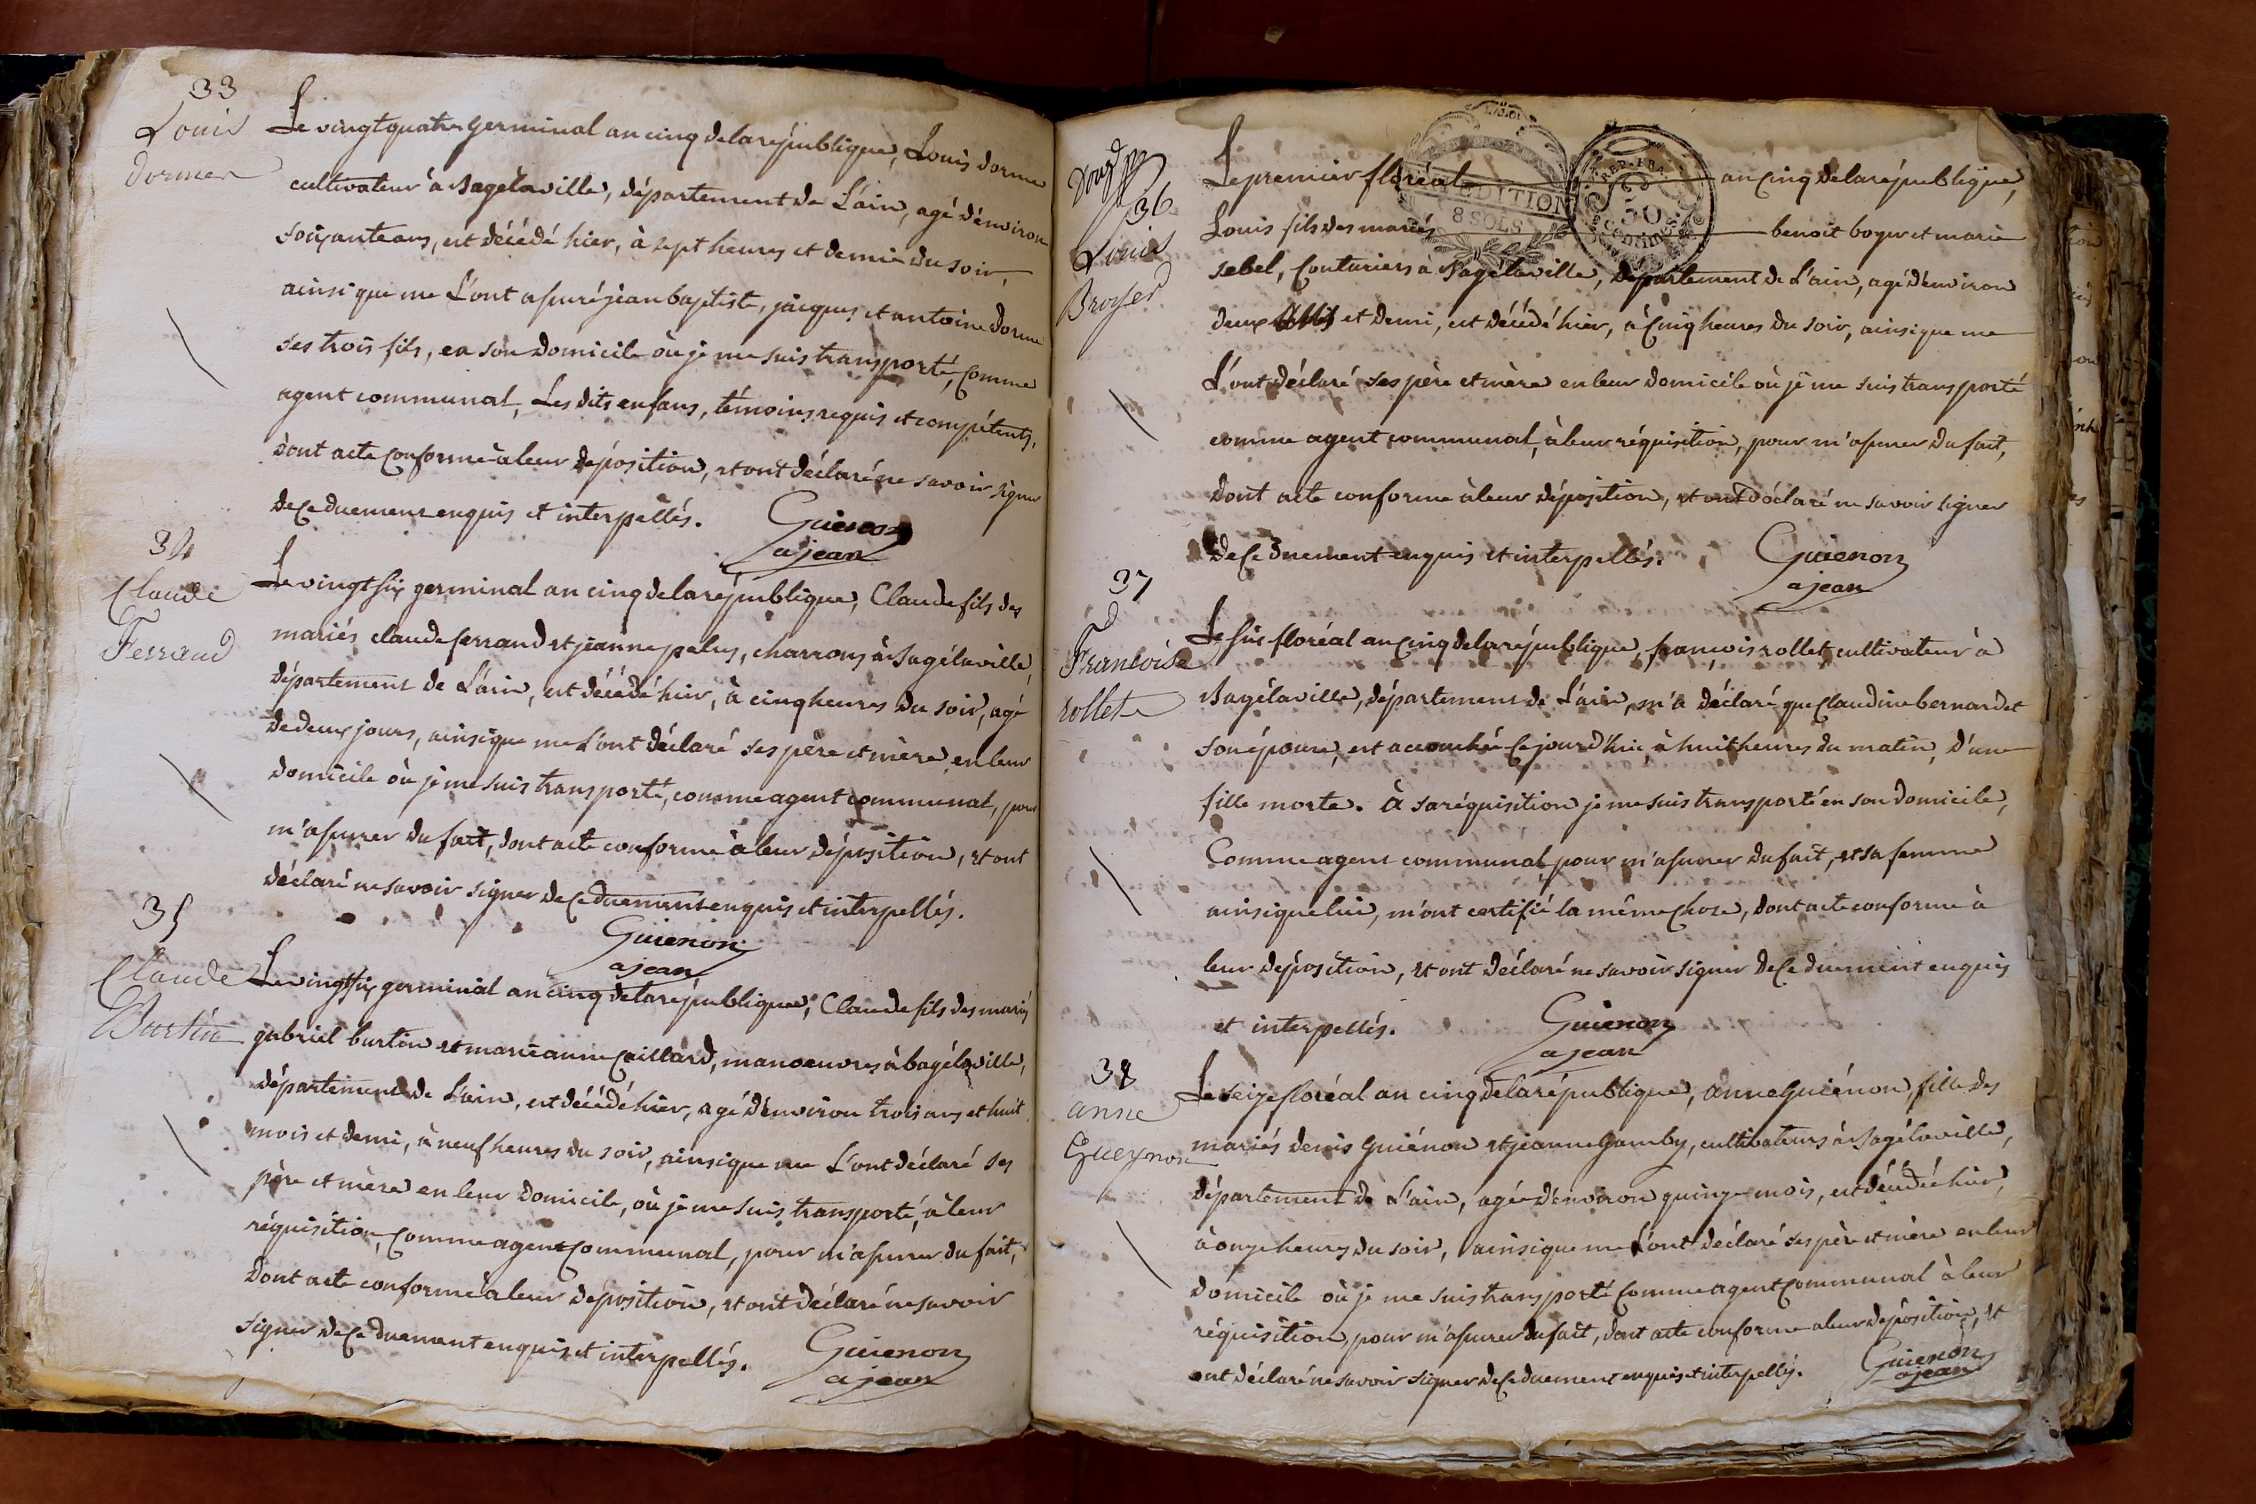 33
Louis
dormer
Le vingt quatre germinal an cinq de la république, Louis dorme
cultivateur à Bagélaville, département de L'ain, agé d'environ
soixante ans, est décédé hier, à sept heures et demie du soir,
ainsi que me L'ont assuré jean baptiste, jacques et antoine dorme
ses trois fils, en son domicile où je me suis transporté, comme
agent communal, Les dits enfans, témoins requis et compétents,
dont acte conforme à leur déposition, et ont déclaré ne savoir signer
de ce duement enquis et interpellés.
Guienon
ajean
34
Claude
Ferraud
Le vingt six germinal an cinq de la république, Claude fils des
mariés claude ferraud et jeanne pelus, charrons à Bagélaville,
département de L'ain, est décédé hier, à cinq heures du soir, agé
de deux jours, ainsi que me L'ont déclaré ses père et mère en leur
domicile où je me suis transporté, comme agent communal, pour
m'assurer du fait, dont acte conforme à leur déposition, et ont
déclaré ne savoir signer de ce duement enquis et interpellés.
Guienon
ajean
35
Claude
Burtin
Le vingt six germinal an cinq de la république, Claude fils des mariés
gabriel burtin et marie anne Caillard, manoeuvres à bagélaville,
département de L'ain, est décédé hier, agé d'environ trois ans et huit
mois et demi, à neuf heures du soir, ainsi que me L'ont déclaré ses
père et mère en leur domicile, où je me suis transporté, à leur
réquisition, comme agent communal, pour m'assurer du fait,
dont acte conforme à leur déposition, et ont déclaré ne savoir
signer de ce duement enquis et interpellés.
Guienon
ajean
EXPEDITION
8 SOLS
REP. FRA.
50
Centimes
36
Louis
Broyer
Le premier floréal an cinq de la république,
Louis fils des mariés benoit boyer et marie
sebel, Couturiers à Bagélaville, département de L'ain, agé d'environ
deux et demi, est décédé hier, à cinq heures du soir, ainsi que me
L'ont déclaré ses père et mère en leur domicile où je me suis transporté
comme agent communal, à leur réquisition, pour m'assurer du fait,
dont acte conforme à leur déposition, et ont déclaré ne savoir signer
de ce duement enquis et interpellés.
Guienon
ajean
37
Francoise
rollet
Le six floréal an cinq de la république, françois rollet cultivateur à
Bagélaville, département de L'ain, m'a déclaré que Claudine bernardet
son épouse, est accouchée ce jourd'hui, à huit heures du matin, d'une
fille morte. à sa réquisition je me suis transporté en son domicile,
Comme agent communal, pour m'assurer du fait, et sa femme
ainsi que lui, m'ont certifié la même chose, dont acte conforme à
leur déposition, et ont déclaré ne savoir signer de ce duement enquis
et interpellés.
Guienon
ajean
38
anne
Gueynon
Le seize floréal an cinq de la république, anne Guiénon, fille des
mariés denis Guiénon et jeanne Gamby, cultivateurs à Bagélaville,
département de L'ain, agée d'environ quinze mois, est décédée hier,
à onze heures du soir, ainsi que me L'ont déclaré ses père et mère en leur
domicile où je me suis transporté comme agent communal à leur
réquisition, pour m'assurer du fait, dont acte conforme a leur déposition, et
ont déclaré ne savoir signer de ce duement enquis et interpellés.
Guienon
ajean